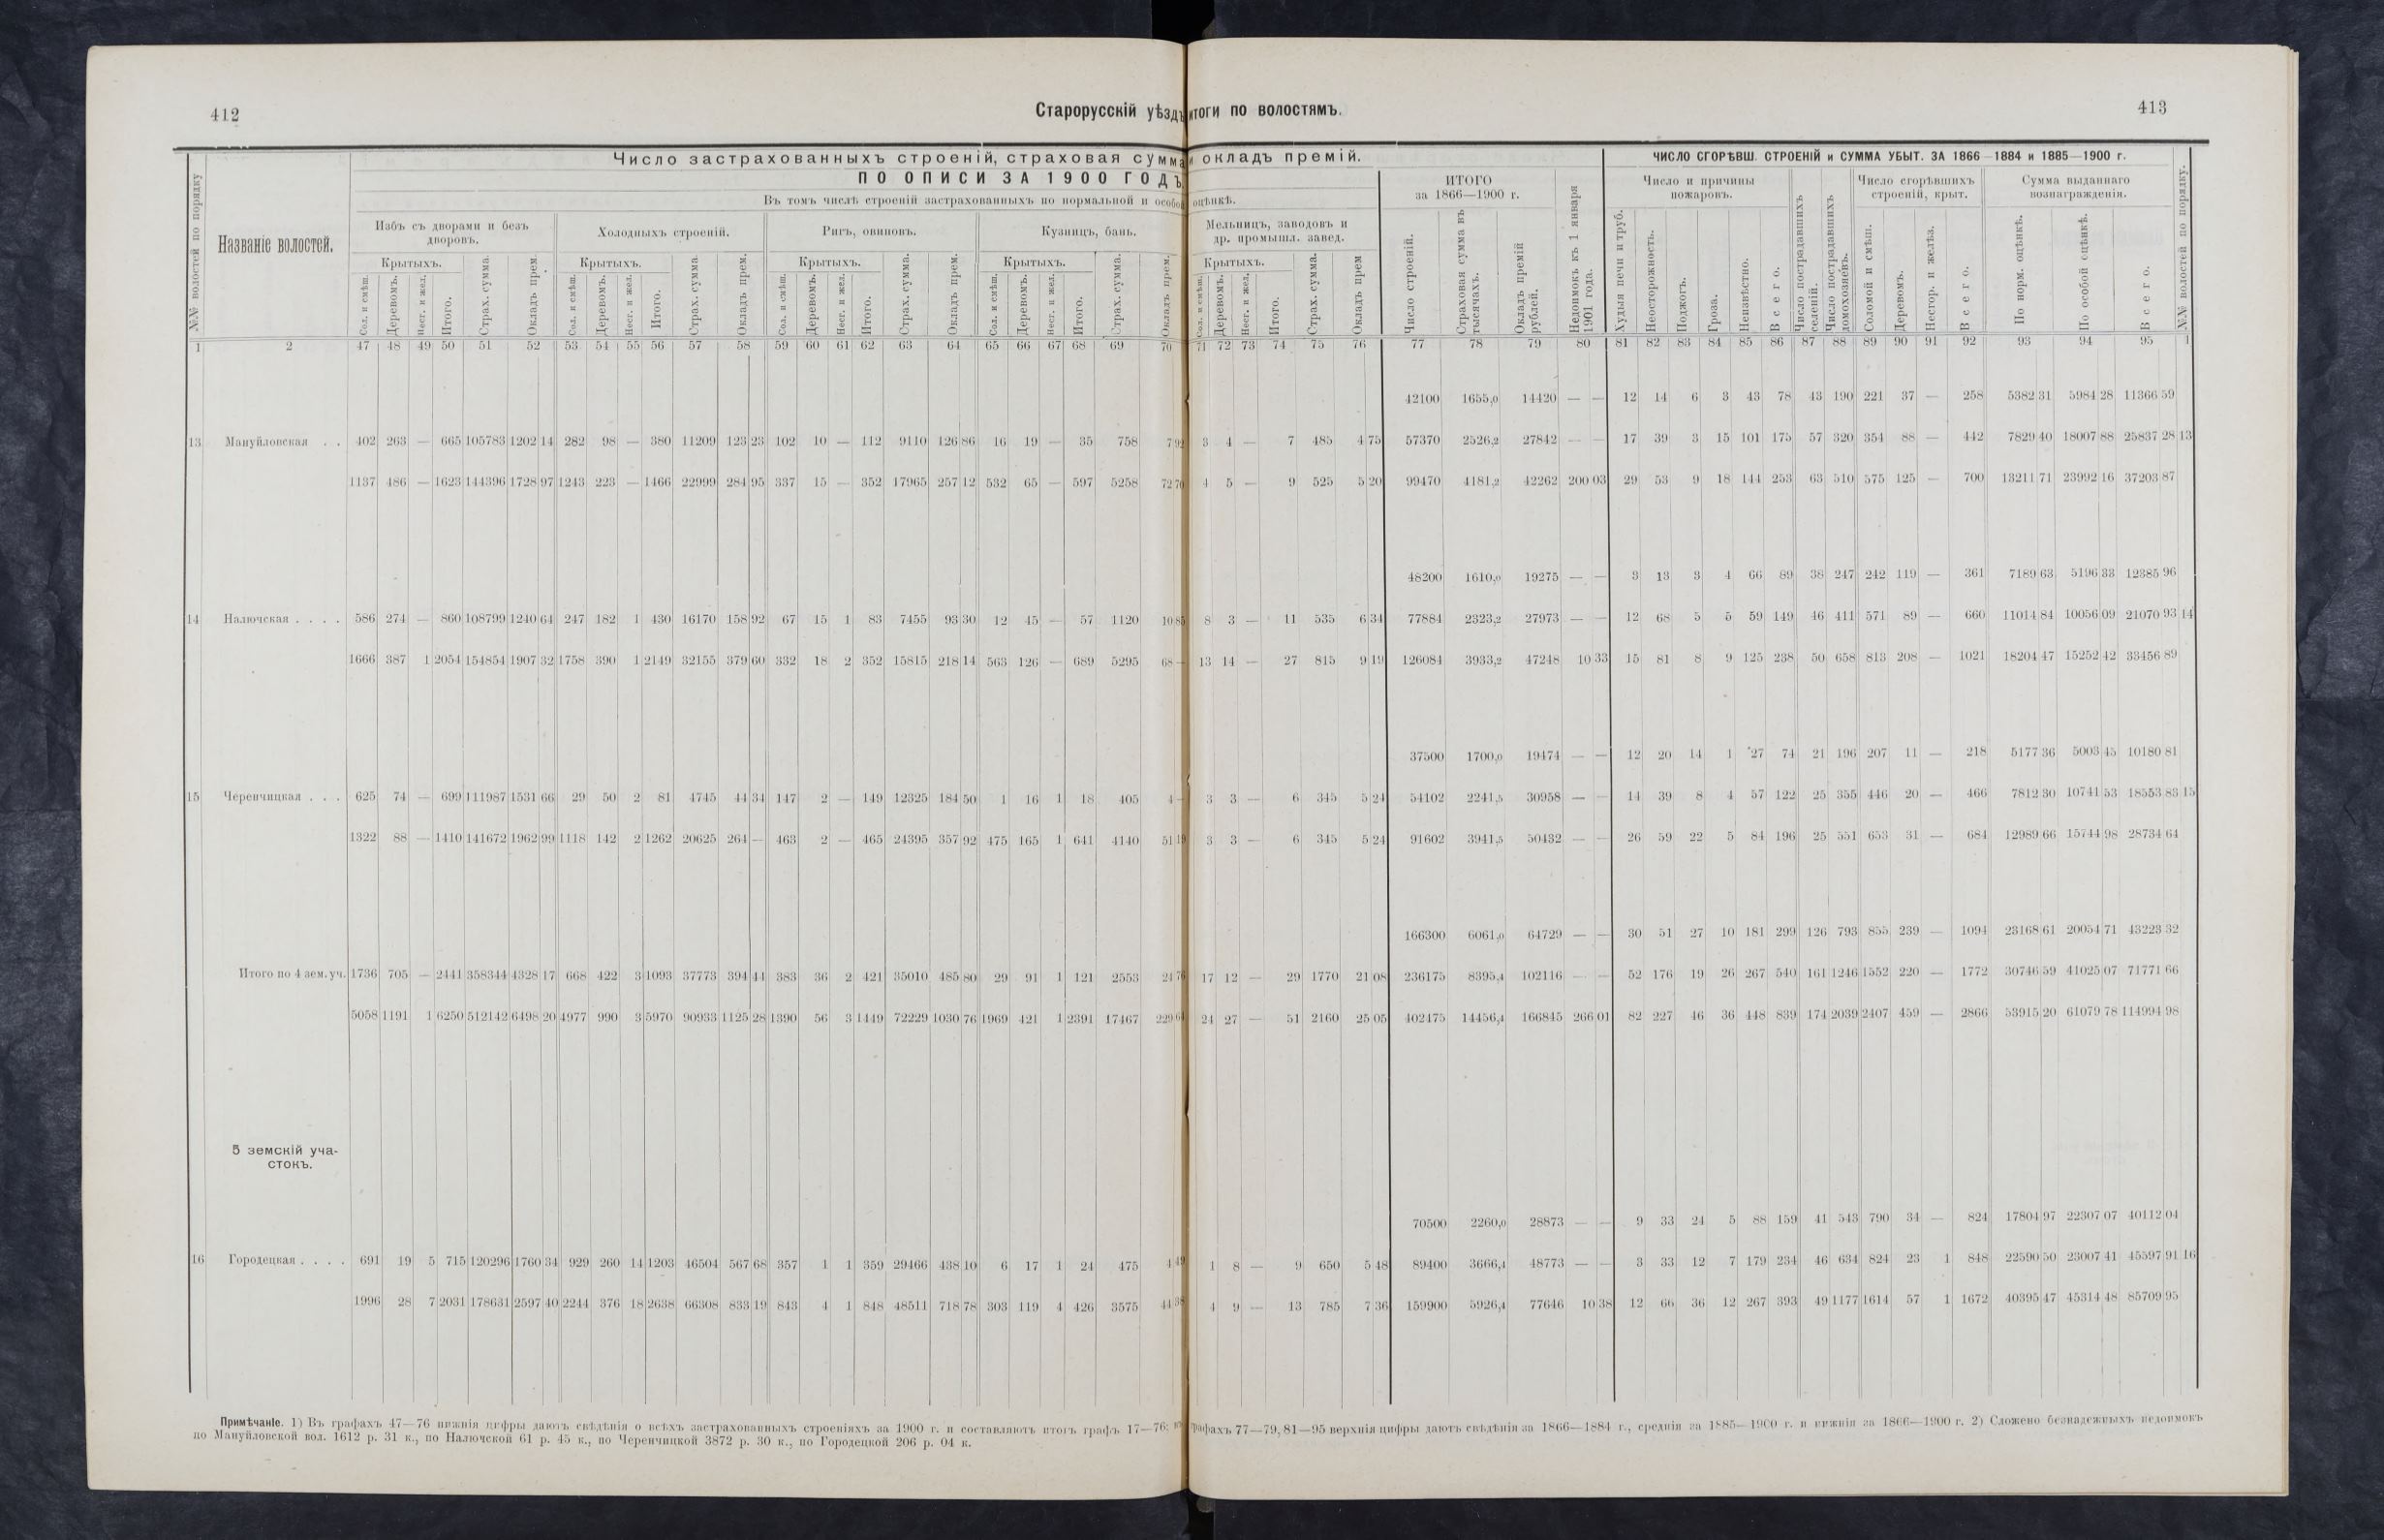 412
Старорусскій уѣздъ
итоги по волостямъ.
413
Число застрахованныхъ строеній, страховая сумма и окладъ премій.
ЧИСЛО СГОРѢВШ. СТРОЕНІЙ и СУММА УБЫТ. ЗА 1866—1884 и 1885—1900 г.
ПО ОПИСИ ЗА 1900 ГОДЪ.
Въ томъ числѣ строеній застрахованныхъ по нормальной и особой оцѣнкѣ.
ИТОГО за 1866—1900 г.
Число и причины пожаровъ.
Число сгорѣвшихъ строеній, крыт.
Сумма выданнаго вознагражденія.
№№ волостей по порядку
Названіе волостей.
Избъ съ дворами и безъ дворовъ.
Холодныхъ строеній.
Ригъ, овиновъ.
Кузницъ, бань.
Мельницъ, заводовъ и др. промышл. завед.
Крытыхъ. Крытыхъ. Крытыхъ. Крытыхъ. Крытыхъ.
Сол. и смѣш. Деревомъ. Несг. и жел. Итого. Страх. сумма. Окладъ прем.
Сол. и смѣш. Деревомъ. Несг. и жел. Итого. Страх. сумма Окладъ прем.
Сол. и смѣш. Деревомъ. Несг. и жел. Итого. Страх. сумма. Окладъ прем.
Сол. и смѣш. Деревомъ. Несг. и жел. Итого. Страх. сумма. Окладъ прем.
Сол. и смѣш. Деревомъ. Несг. и жел. Итого. Страх. сумма. Окладъ прем
Число строеній. Страховая сумма въ тысячахъ. Окладъ премій рублей. Недоимокъ къ 1 января 1901 года.
Худыя печи и труб. Неосторожность. Поджогъ. Гроза. Неизвѣстно. Всего. Число пострадавшихъ селеній. Число пострадавшихъ домохозяевъ.
Соломой и смѣш. Деревомъ. Несгор. и желѣз. Всего. По норм. оцѣнкѣ. По особой оцѣнкѣ. Всего. №№ волостей по порядку.
1 2 47 48 49 50 51 52 53 54 55 56 57 58 59 60 61 62 63 64 65 66 67 68 69 70 71 72 73 74 75 76 77 78 79 80 81 82 83 84 85 86 87 88 89 90 91 92 93 94 95 1
42100 1655,0 14420 — — 12 14 6 3 43 78 43 190 221 37 — 258 5382 31 5984 28 11366 59
13 Мануйловская . . 402 263 — 665 105783 1202 14 282 98 — 380 11209 123 23 102 10 — 112 9110 126 86 16 19 — 35 758 7 92 3 4 — 7 485 4 75 57370 2526,2 27842 — — 17 39 3 15 101 175 57 320 354 88 — 442 7829 40 18007 88 25837 28 13
1137 486 — 1623 144396 1728 97 1243 223 — 1466 22999 284 95 337 15 — 352 17965 257 12 532 65 — 597 5258 72 70 4 5 — 9 525 5 20 99470 4181,2 42262 200 03 29 53 9 18 144 253 63 510 575 125 — 700 13211 71 23992 16 37203 87
48200 1610,0 19275 — — 3 13 3 4 66 89 38 247 242 119 — 361 7189 63 5196 33 12385 96
14 Налючская . . . . 586 274 — 860 108799 1240 64 247 182 1 430 16170 158 92 67 15 1 83 7455 93 30 12 45 — 57 1120 10 85 8 3 — 11 535 6 34 77884 2323,2 27973 — — 12 68 5 5 59 149 46 411 571 89 — 660 11014 84 10056 09 21070 93 14
1666 387 1 2054 154854 1907 32 1758 390 1 2149 32155 379 60 332 18 2 352 15815 218 14 563 126 — 689 5295 68 — 13 14 — 27 815 9 19 126084 3933,2 47248 10 33 15 81 8 9 125 238 50 658 813 208 — 1021 18204 47 15252 42 33456 89
37500 1700,0 19474 — — 12 20 14 1 27 74 21 196 207 11 — 218 5177 36 5003 45 10180 81
15 Черенчицкая . . . 625 74 — 699 111987 1531 66 29 50 2 81 4745 44 34 147 2 — 149 12325 184 50 1 16 1 18 405 4 — 3 3 — 6 345 5 24 54102 2241,5 30958 — — 14 39 8 4 57 122 25 355 446 20 — 466 7812 30 10741 53 18553 83 15
1322 88 — 1410 141672 1962 99 1118 142 2 1262 20625 264 — 463 2 — 465 24395 357 92 475 165 1 641 4140 51 19 3 3 — 6 345 5 24 91602 3941,5 50432 — — 26 59 22 5 84 196 25 551 653 31 — 684 12989 66 15744 98 28734 64
166300 6061,0 64729 — — 30 51 27 10 181 299 126 793 855 239 — 1094 23168 61 20054 71 43223 32
Итого по 4 зем. уч. 1736 705 — 2441 358344 4328 17 668 422 3 1093 37773 394 44 383 36 2 421 35010 485 80 29 91 1 121 2553 24 76 17 12 — 29 1770 21 08 236175 8395,4 102116 — — 52 176 19 26 267 540 161 1246 1552 220 — 1772 30746 59 41025 07 71771 66
5058 1191 1 6250 512142 6498 20 4977 990 3 5970 90933 1125 28 1390 56 3 1449 72229 1030 76 1969 421 1 2391 17467 229 64 24 27 — 51 2160 25 05 402475 14456,4 166845 266 01 82 227 46 36 448 839 174 2039 2407 459 — 2866 53915 20 61079 78 114994 98
5 земскій уча-
стокъ.
70500 2260,0 28873 — — 9 33 24 5 88 159 41 543 790 34 — 824 17804 97 22307 07 40112 04
16 Городецкая . . . . 691 19 5 715 120296 1760 34 929 260 14 1203 46504 567 68 357 1 1 359 29466 438 10 6 17 1 24 475 4 49 1 8 — 9 650 5 48 89400 3666,4 48773 — — 3 33 12 7 179 234 46 634 824 23 1 848 22590 50 23007 41 45597 91 16
1996 28 7 2031 178631 2597 40 2244 376 18 2638 66308 833 19 843 4 1 848 48511 718 78 303 119 4 426 3575 44 38 4 9 — 13 785 7 36 159900 5926,4 77646 10 38 12 66 36 12 267 393 49 1177 1614 57 1 1672 40395 47 45314 48 85709 95
Примѣчаніе. 1) Въ графахъ 47—76 нижнія цифры даютъ свѣдѣнія о всѣхъ застрахованныхъ строеніяхъ за 1900 г. и составляютъ итогъ графъ 17—76; въ графахъ 77—79, 81—95 верхнія цифры даютъ свѣдѣнія за 1866—1884 г., среднія за 1885—1900 г. и нижнія за 1866—1900 г. 2) Сложено безнадежныхъ недоимокъ
по Мануйловской вол. 1612 р. 31 к., по Налючской 61 р. 45 к., по Черенчицкой 3872 р. 30 к., по Городецкой 206 р. 04 к.